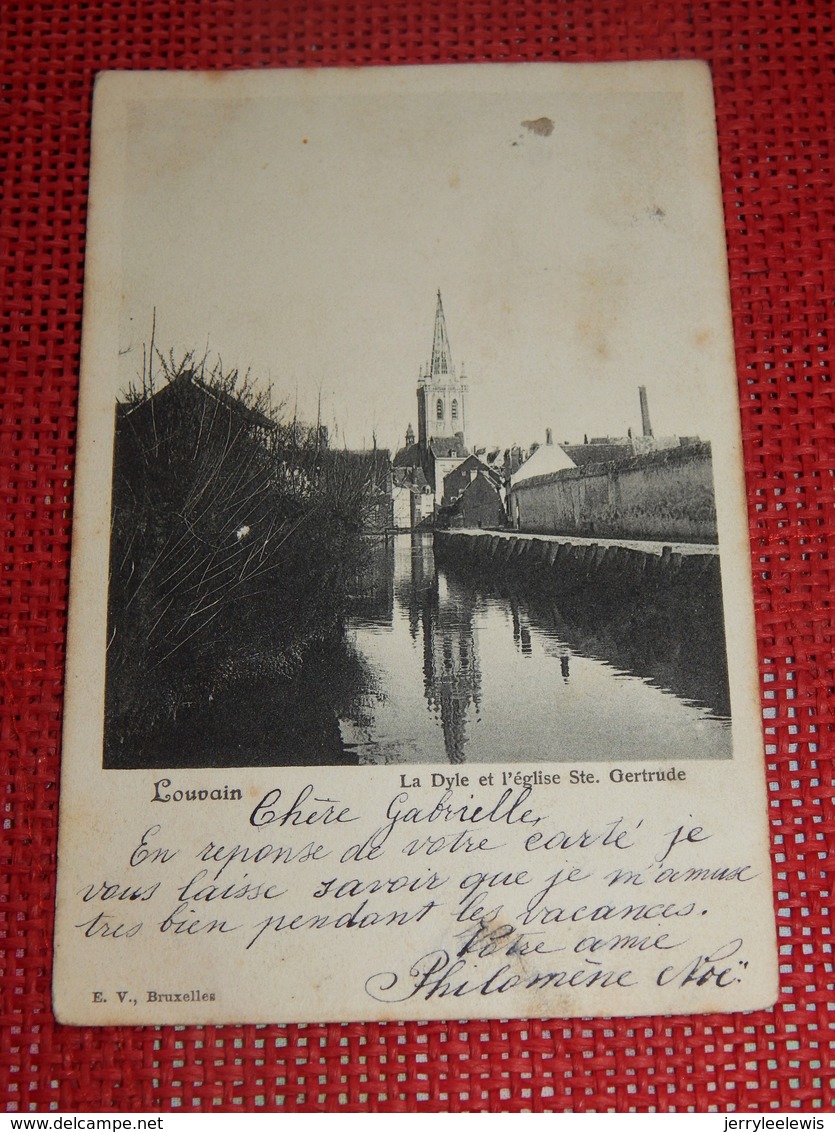 Louvain
La Dyle et l'église Ste. Gertrude
Chère Gabrielle,
En reponse de votre carté je
vous laisse savoir que je m'amuse
tres bien pendant les vacances.
Votre amie
Philomène Noë.
E. V., Bruxelles
© delcampe.net
jerryleelewis